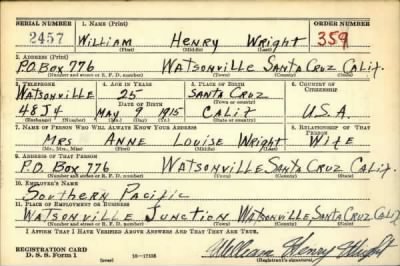 SERIAL NUMBER 1. NAME (Print) ORDER NUMBER
2457 WILLIAM HENRY WRIGHT 359
(First) (Middle) (Last)
2. ADDRESS (Print)
P.O. BOX 776 WATSONVILLE SANTA CRUZ CALIF.
(Number and street or R. F. D. number) (Town) (County) (State)
3. TELEPHONE 4. AGE IN YEARS 5. PLACE OF BIRTH 6. COUNTRY OF CITIZENSHIP
WATSONVILLE 25 SANTA CRUZ
DATE OF BIRTH (Town or county)
48J4 MAY 9 1915 CALIF U.S.A.
(Exchange) (Number) (Mo.) (Day) (Yr.) (State or country)
7. NAME OF PERSON WHO WILL ALWAYS KNOW YOUR ADDRESS 8. RELATIONSHIP OF THAT PERSON
MRS ANNE LOUISE WRIGHT WIFE
(Mr., Mrs., Miss) (First) (Middle) (Last)
9. ADDRESS OF THAT PERSON
P.O. BOX 776 WATSONVILLE SANTA CRUZ CALIF.
(Number and street or R. F. D. number) (Town) (County) (State)
10. EMPLOYER'S NAME
SOUTHERN PACIFIC
11. PLACE OF EMPLOYMENT OR BUSINESS
WATSONVILLE JUNCTION WATSONVILLE SANTA CRUZ CALIF.
(Number and street or R. F. D. number) (Town) (County) (State)
I AFFIRM THAT I HAVE VERIFIED ABOVE ANSWERS AND THAT THEY ARE TRUE.
REGISTRATION CARD
D. S. S. Form 1 (over) 16—17105 William Henry Wright
(Registrant's signature)